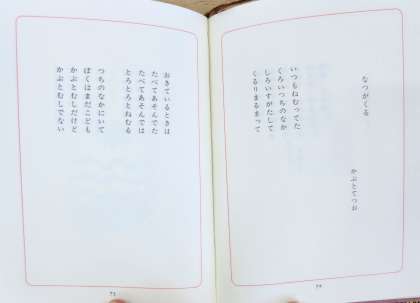 なつがくる
かぶとてつお
いつもねむってた
くろいつちのなか
しろいすがたして
くるりまるまって
おきているときは
たべてあそんでた
たべてあそんでは
とろとろとねむる
つちのなかにいて
ぼくはまだこども
かぶとむしだけど
かぶとむしでない